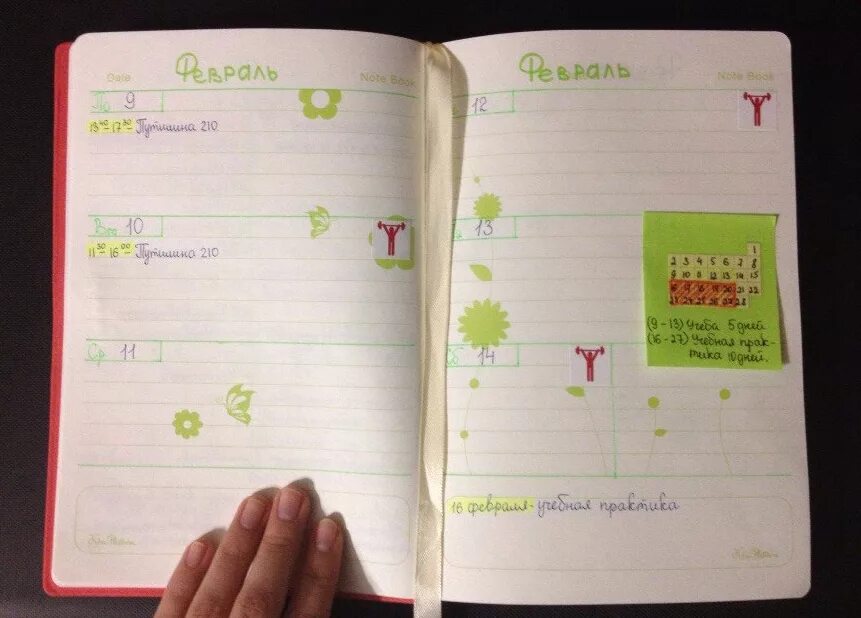 Date
Февраль
Note Book
По 9
13⁴⁰-17³⁰- Путишина 210
Вт 10
11⁵⁰-16⁰⁰- Путишина 210
Ср 11
Февраль
Note Book
12
13
Сб 14
16 февраля- учебная практика
1
2 3 4 5 6 7 8
9 10 11 12 13 14 15
16 17 18 19 20 21 22
23 24 25 26 27 28
(9-13) Учеба 5 дней
(16-27) Учебная прак-
тика 10 дней.